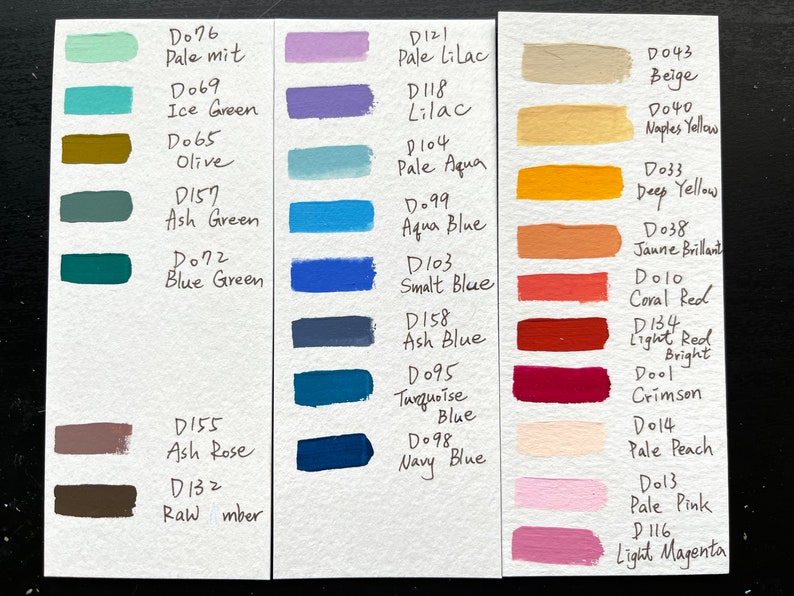 D076
Pale mit
D069
Ice Green
D065
Olive
D157
Ash Green
D072
Blue Green
D155
Ash Rose
D132
Raw mber
D121
Pale Lilac
D118
Lilac
D104
Pale Aqua
D099
Aqua Blue
D103
Smalt Blue
D158
Ash Blue
D095
Turquoise
Blue
D098
Navy Blue
D043
Beige
D040
Naples Yellow
D033
Deep Yellow
D038
Jaune Brillant
D010
Coral Red
D134
Light Red
Bright
D001
Crimson
D014
Pale Peach
D013
Pale Pink
D116
Light Magenta